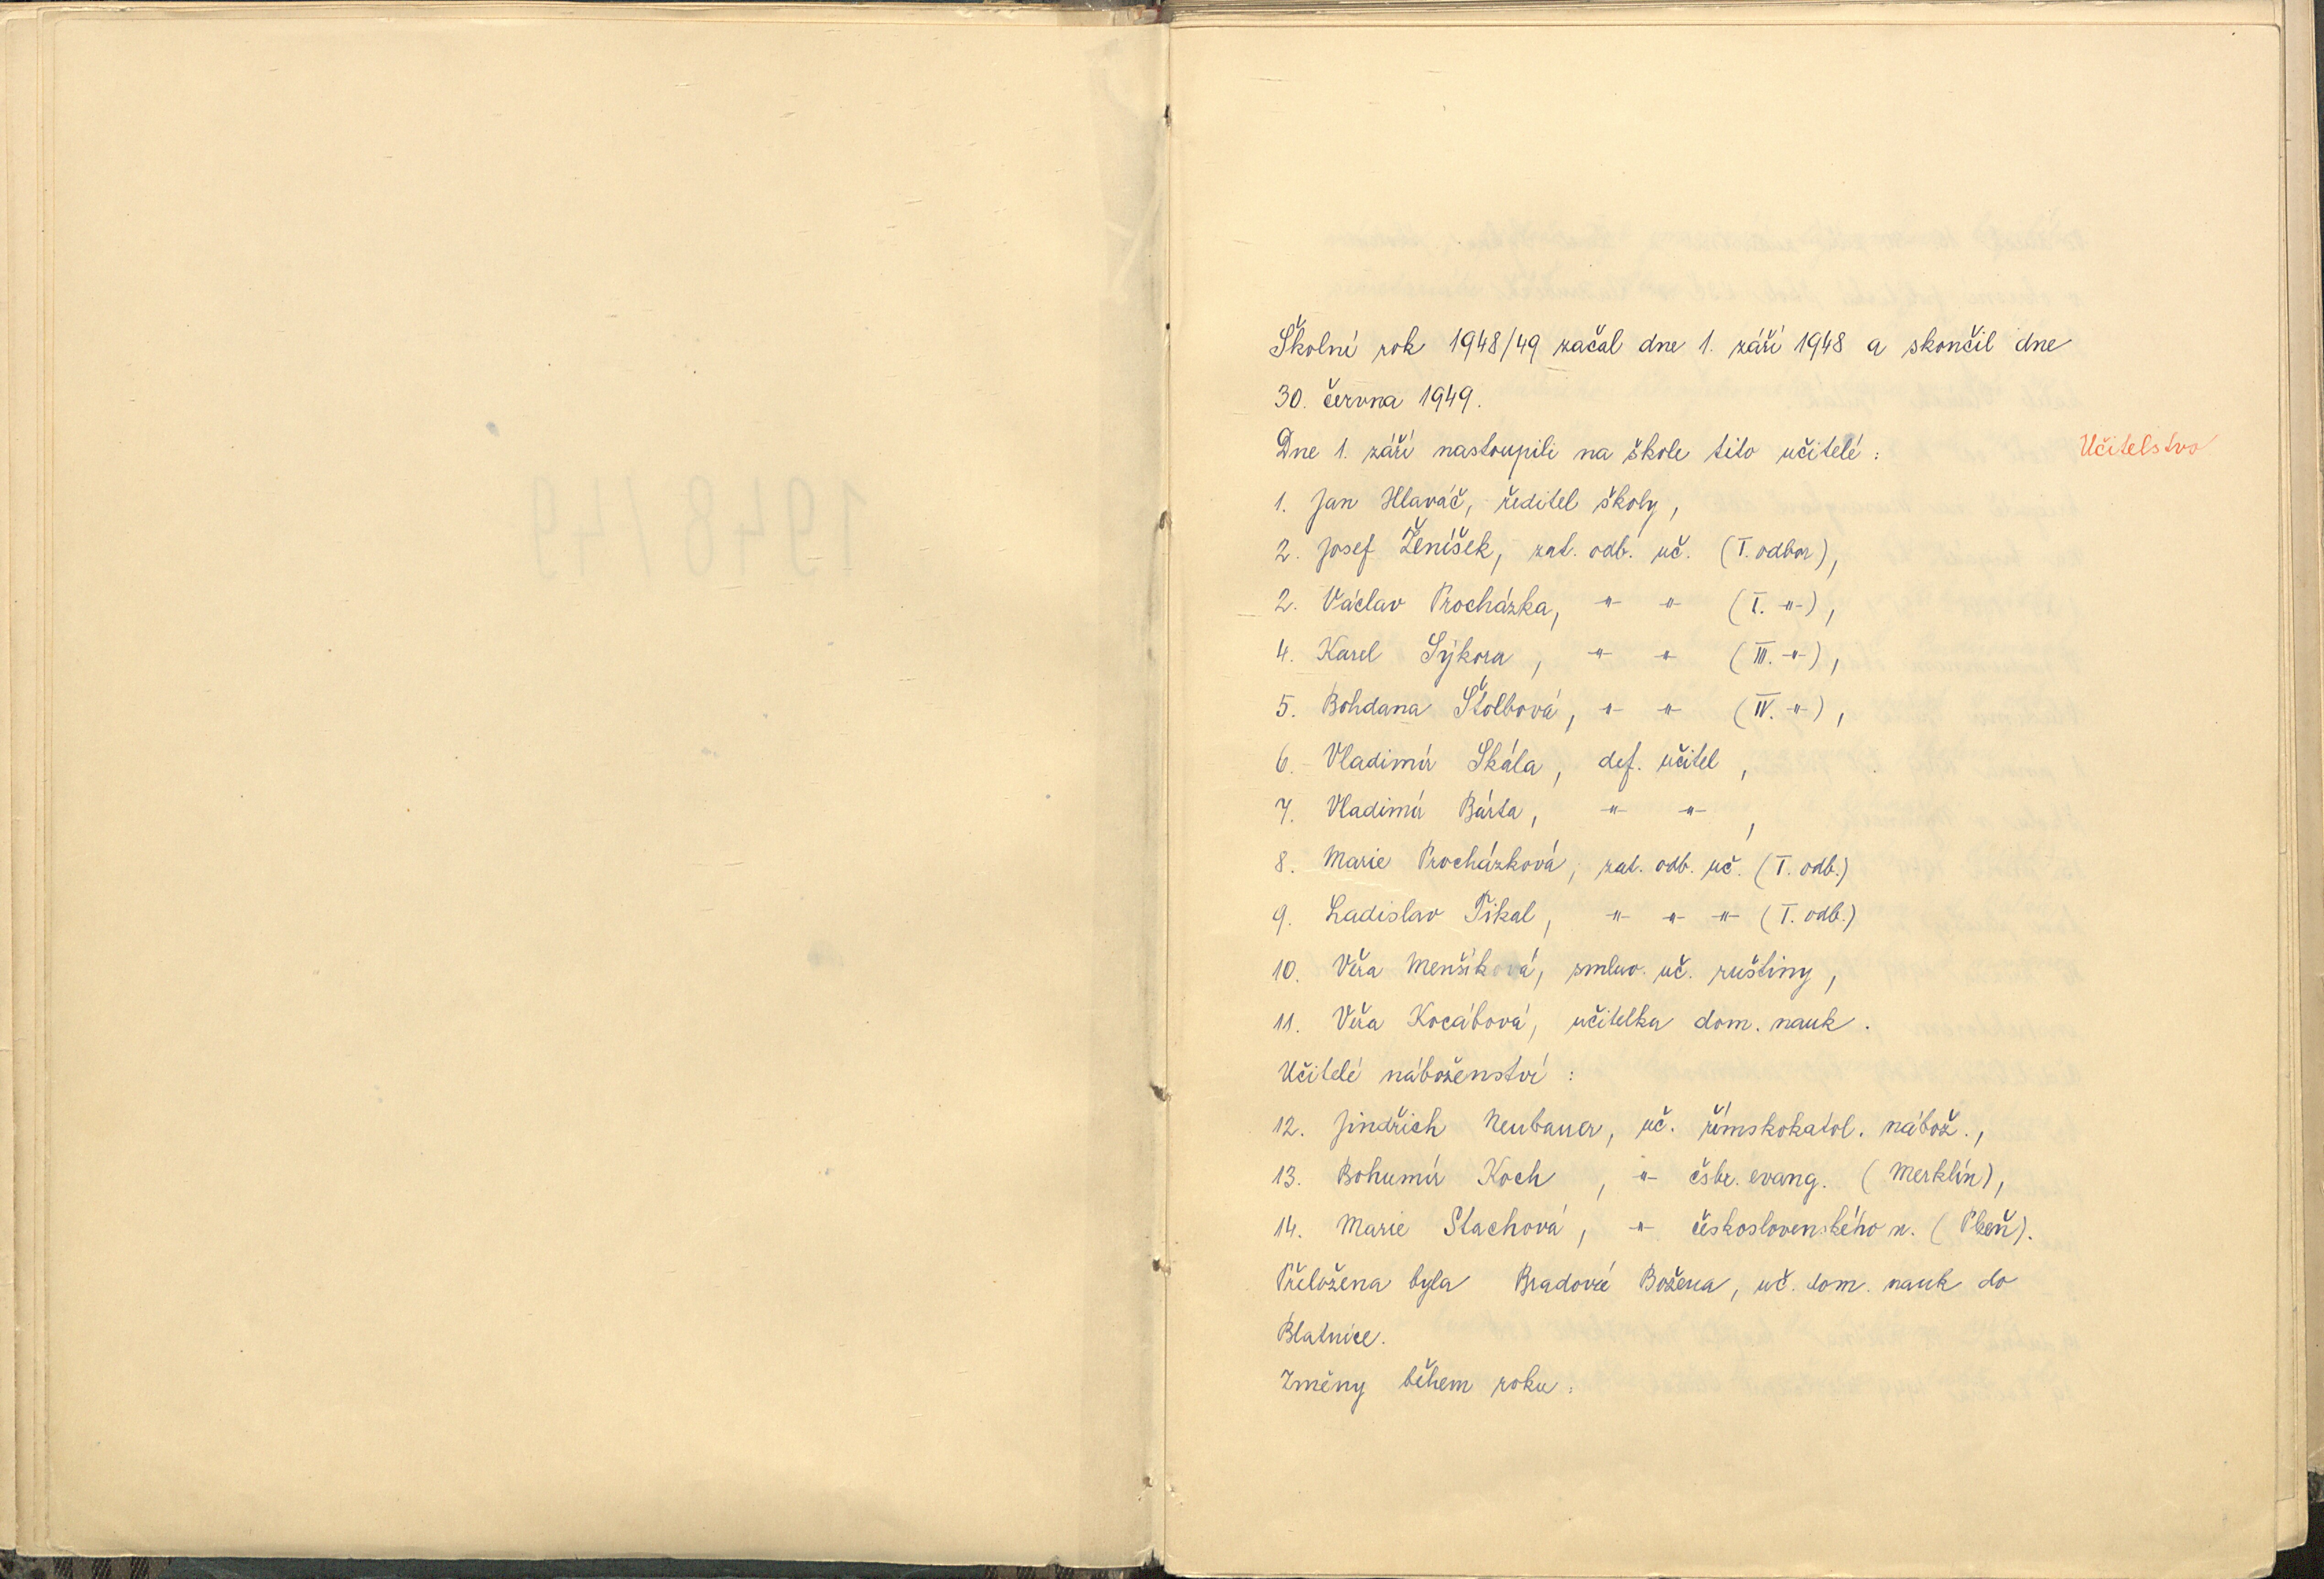 Školní rok 1948/49 začal dne 1. září 1948 a skončil dne
30. června 1949.
Dne 1. září nastoupili na škole tito učitelé:
Učitelstvo
1. Jan Hlaváč, ředitel školy,
2. Josef Ženíšek, zat. odb. uč. (I. odbor),
2. Václav Procházka, -"- -"- (I. -"-),
4. Karel Sýkora, -"- -"- (III. -"-),
5. Bohdana Štolbová, -"- -"- (IV. -"-),
6. Vladimír Skála, def. učitel,
7. Vladimír Bárta, -"- -"-,
8. Marie Procházková, zat. odb. uč. (I. odb.)
9. Ladislav Tikal, -"- -"- -"- (I. odb.)
10. Věra Menšíková, smluv. uč. ruštiny,
11. Věra Kocábová, učitelka dom. nauk.
Učitelé náboženství:
12. Jindřich Neubauer, uč. římskokatol. nábož.,
13. Bohumír Koch, -"- čsbr. evang. (Merklín),
14. Marie Stachová, -"- československého n. (Plzeň).
Přeložena byla Bradová Božena, uč. dom. nauk do
Blatnice.
Změny během roku: